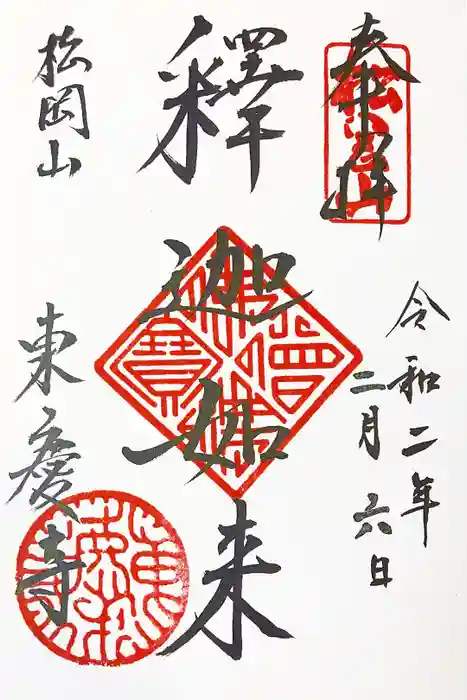 奉拝
令和二年
二月六日
釋迦如来
松岡山
東慶寺